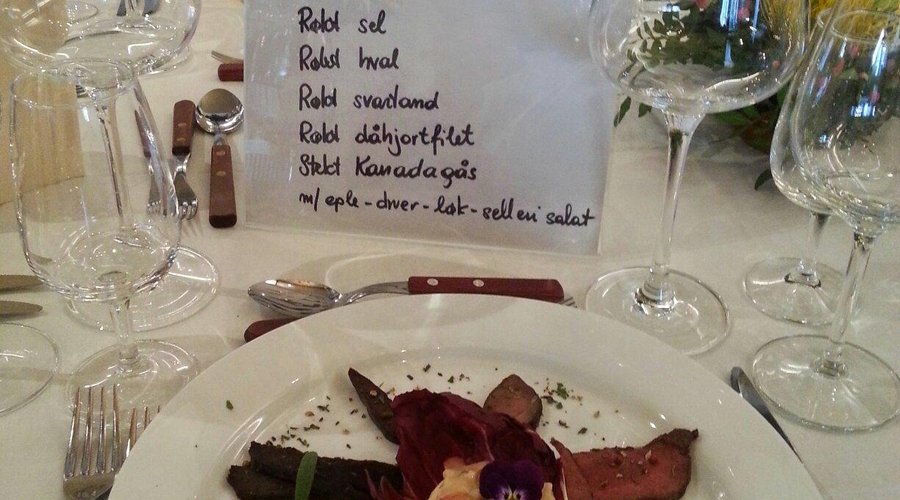 Røkt sel
Røkt hval
Røkt svartand
Røkt dåhjortfilet
Stekt Kanadagås
m/ eple-druer-løk-selleri salat